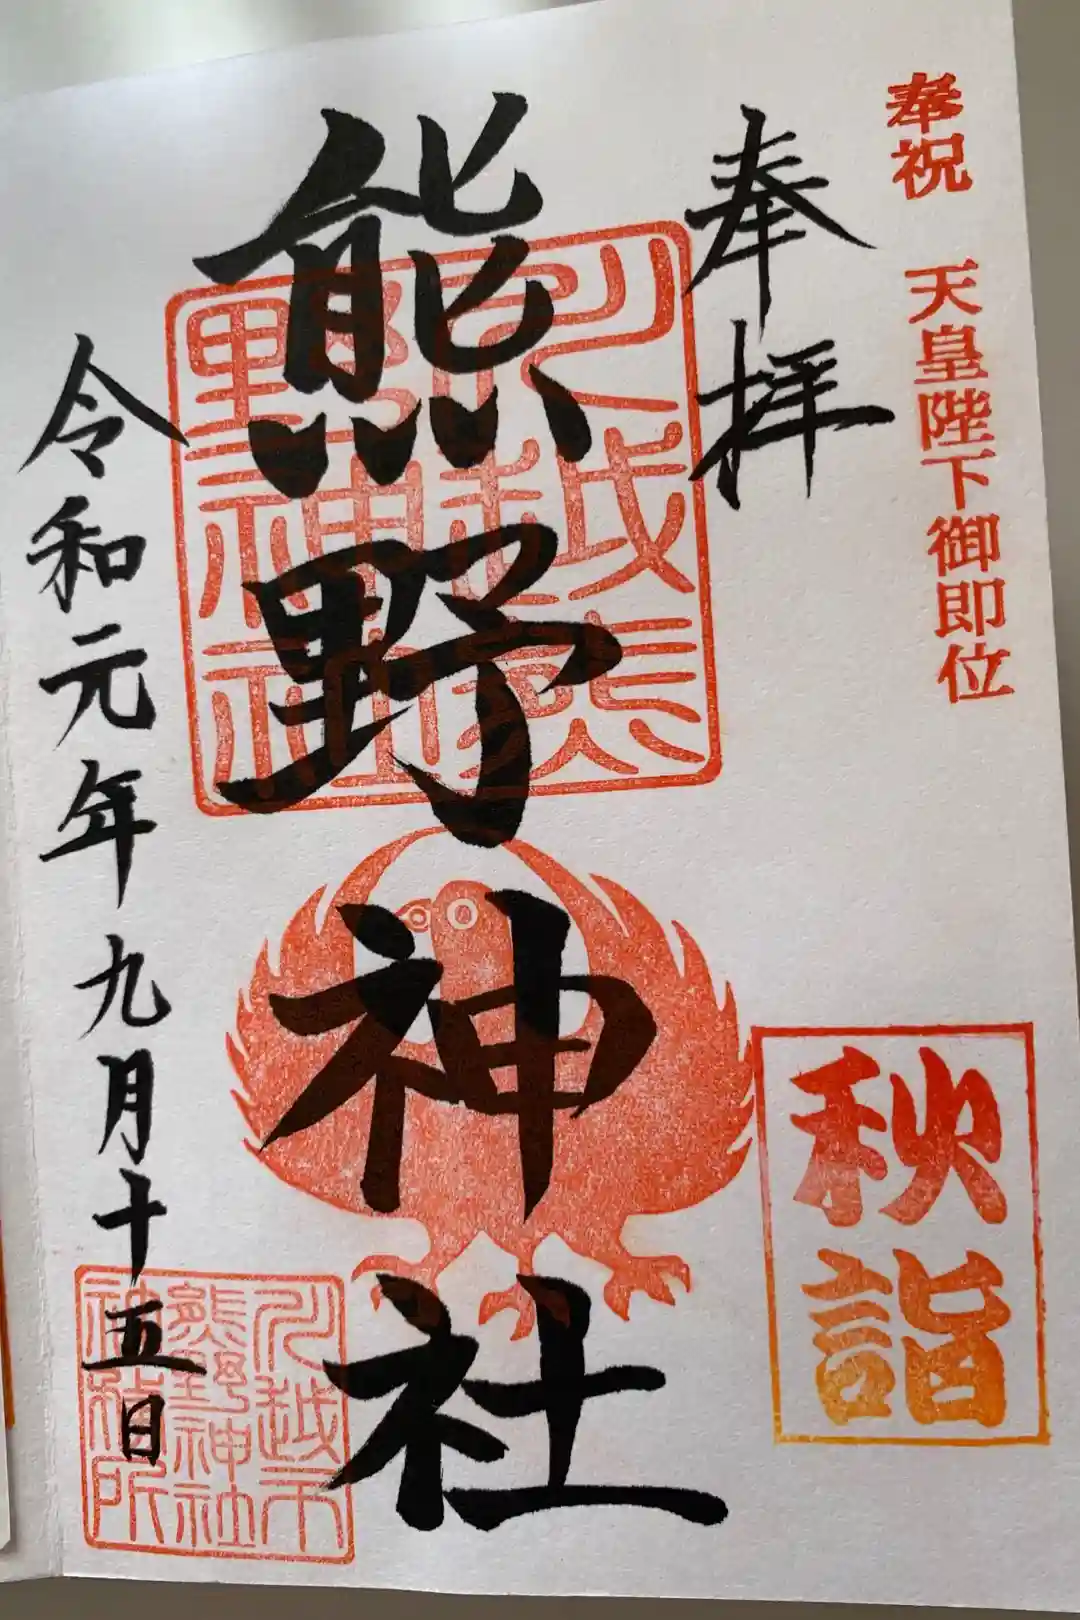 奉祝 天皇陛下御即位
奉拝
川越熊野神社
熊野神社
秋詣
令和元年九月十五日
川越市
熊野神社
社務所